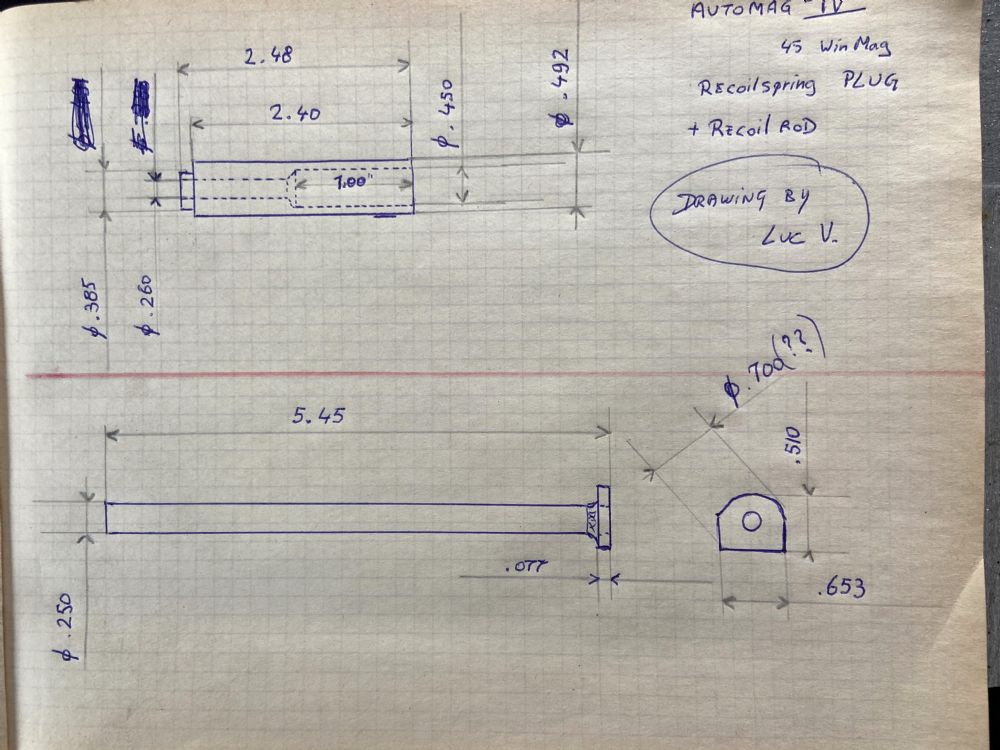 AUTOMAG IV
45 WinMag
Recoilspring PLUG
+ Recoil ROD
DRAWING BY
LUC V.
2.48
2.40
ϕ .450
ϕ .492
1.00"
ϕ .385
ϕ .260
5.45
ϕ .700 (??)
.510
.077
.653
ϕ .250